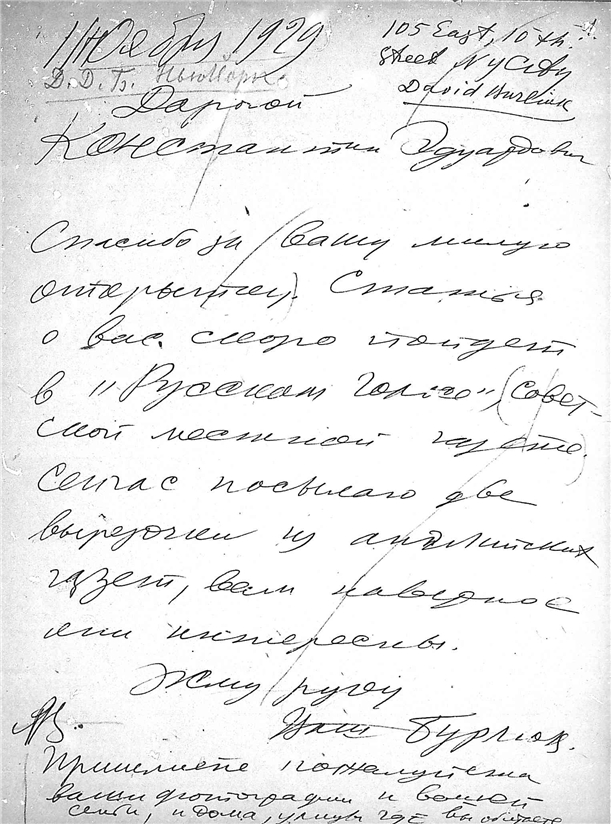 1 Ноября 1929
105 East, 10 th.
Street N Y City
David Burliuk
Д. Д. Б. Нью Йорк.
Дорогой
Константин Эдуардович
!
Спасибо за вашу милую
открытку. Статья
о вас скоро пойдет
в "Русском Голосе", (совет-
ской местной газете)
сейчас посылаю две
вырезки из английских
газет, вам наверное
они интересны.
Жму руку
Ваш Бурлюк.
Пришлите пожалуйста
ваши фотографии и вашей
семьи, и дома, улицы где вы обитаете